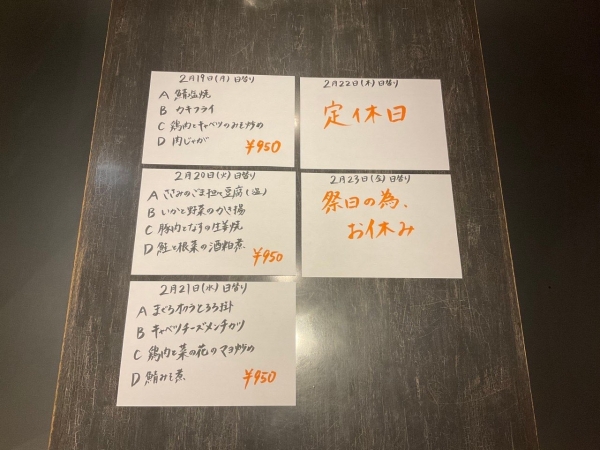 2月19日(月) 日替り
A 鯖塩焼
B カキフライ
C 鶏肉とキャベツのみそ炒め
D 肉じゃが
¥950
2月20日(火) 日替り
A ささみのごま担々豆腐(温)
B いかと野菜のかき揚
C 豚肉となすの生姜焼
D 鮭と根菜の酒粕煮
¥950
2月21日(水) 日替り
A まぐろオクラとろろ掛
B キャベツチーズメンチカツ
C 鶏肉と菜の花のマヨ炒め
D 鯖みそ煮
¥950
2月22日(木) 日替り
定休日
2月23日(金) 日替り
祭日の為、
お休み